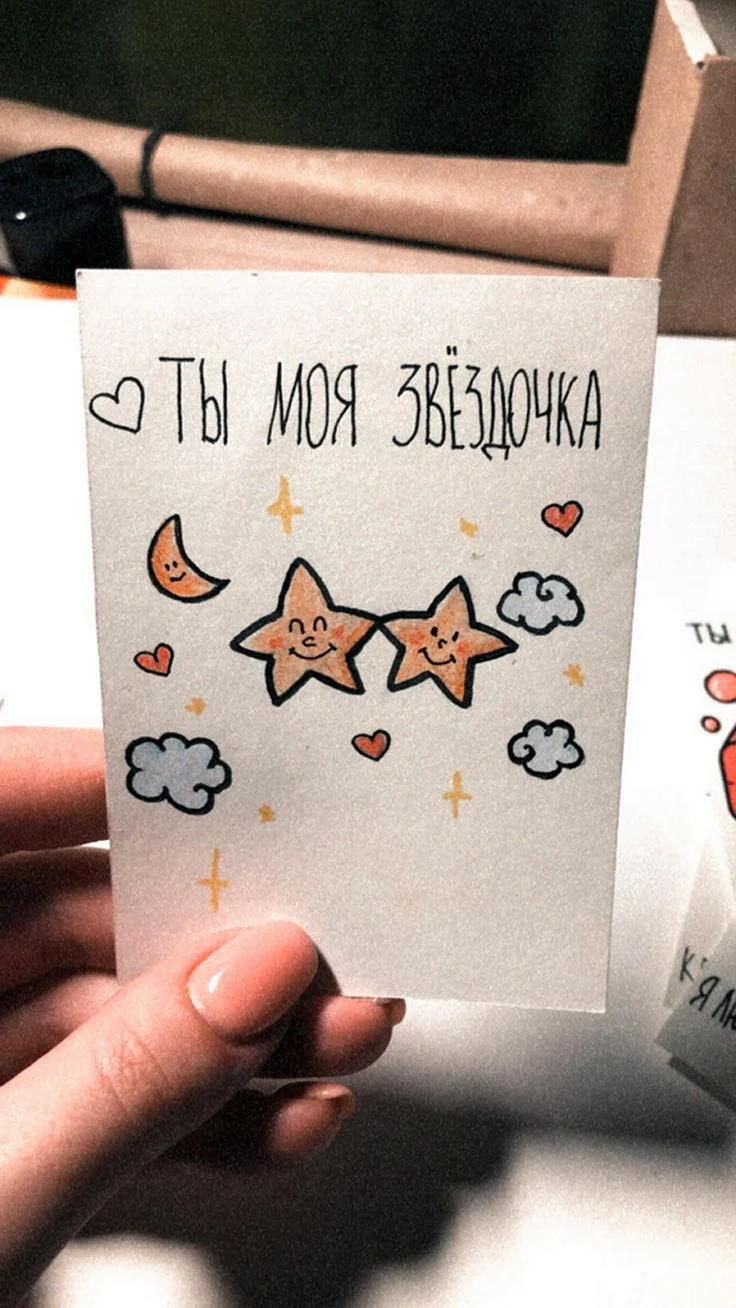 ТЫ МОЯ ЗВЁЗДОЧКА
ТЫ